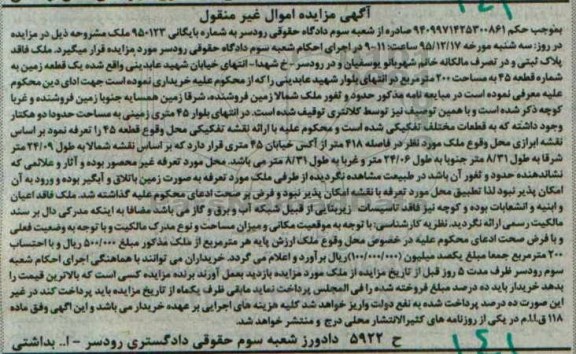 آگهی مزایده اموال غیر منقول
بموجب حکم ۹۴۰۹۹۷۱۴۲۵۳۰۰۸۶۱ صادره از شعبه سوم دادگاه حقوقی رودسر به شماره بایگانی ۹۵۰۱۲۳ ملک مشروحه ذیل در مزایده
در روز: سه شنبه مورخه ۹۵/۱۲/۱۷ ساعت: ۱۱-۹ در اجرای احکام شعبه سوم دادگاه حقوقی رودسر مورد مزایده قرار میگیرد. ملک فاقد
پلاک ثبتی و در تصرف مالکانه خانم شهربانو یوسفیان و در رودسر - خ شهدا - انتهای خیابان شهید عابدینی واقع شده یک قطعه زمین به
شماره قطعه ۴۵ به مساحت ۲۰۰ مترمربع در انتهای بلوار شهید عابدینی را که از محکوم علیه خریداری نموده است جهت ادای دین محکوم
علیه معرفی نموده است در مبایعه نامه مذکور حدود و ثغور ملک شمالا زمین فروشنده، شرقا زمین همسایه جنوبا زمین فروشنده و غربا
کوچه ذکر شده است و با همین توصیف نیز توسط کلانتری توقیف شده است. در انتهای بلوار ۴۵ متری زمینی به مساحت حدودا دو هکتار
وجود داشته که به قطعات مختلف تفکیکی شده است و محکوم علیه با ارائه نقشه تفکیکی محل وقوع قطعه ۴۵ را تعرفه نمود بر اساس
نقشه ابرازی محل وقوع ملک مورد نظر در فاصله ۴۱۸ متر از آکس خیابان ۴۵ متری قرار دارد که بر اساس نقشه شمالا به طول ۲۴/۰۹ متر
شرقا به طول ۸/۳۱ متر جنوبا به طول ۲۴/۰۶ متر و غربا به طول ۸/۳۱ متر می باشد. محل مورد تعرفه غیر محصور بوده و آثار و علائمی که
نشاندهنده حدود و ثغور آن باشد در طبیعت مشاهده نگردیده از طرفی ملک مورد تعرفه به صورت زمین باتلاق و آبگیر بوده و ورود به آن
امکان پذیر نبود لذا تطبیق محل مورد تعرفه با نقشه امکان پذیر نبود و فرض بر صحت ادعای محکوم علیه گذاشته شد. ملک فاقد اعیان
و ابنیه و انشعابات بوده و کوچه نیز فاقد تاسیسات زیربنایی از قبیل شبکه آب و برق و گاز می باشد مضافا به اینکه مدرکی دال بر سند
مالکیت رسمی ارائه نگردید. نظریه کارشناسی: با توجه به موقعیت مکانی و میزان مساحت و نوع مدرک مالکیت و با توجه به وضعیت فعلی
و با فرض صحت ادعای محکوم علیه در خصوص محل وقوع ملک ارزش پایه هر مترمربع از ملک مذکور مبلغ ۵۰۰/۰۰۰ ریال و با احتساب
۲۰۰ مترمربع جمعا مبلغ یکصد میلیون (۱۰۰/۰۰۰/۰۰۰) ریال برآورد و اعلام می گردد. خریداران می توانند با هماهنگی اجرای احکام شعبه
سوم رودسر ظرف مدت ۵ روز قبل از تاریخ مزایده از ملک مورد مزایده بازدید بعمل آورند برنده مزایده کسی است که بالاترین قیمت را
بدهد خریدار باید ده درصد مبلغ فروخته شده را فی المجلس پرداخت نماید مابقی ظرف یکماه از تاریخ مزایده باید پرداخت کند در غیر
این صورت ده درصد پرداخت شده به نفع دولت واریز خواهد شد کلیه هزینه های اجرایی بر عهده خریدار می باشد و این آگهی وفق ماده
۱۱۸ ق.ا.م در یکی از روزنامه های کثیرالانتشار محلی درج و منتشر خواهد شد.
ح ۵۹۲۲ دادورز شعبه سوم حقوقی دادگستری رودسر - ا.. بداشتی